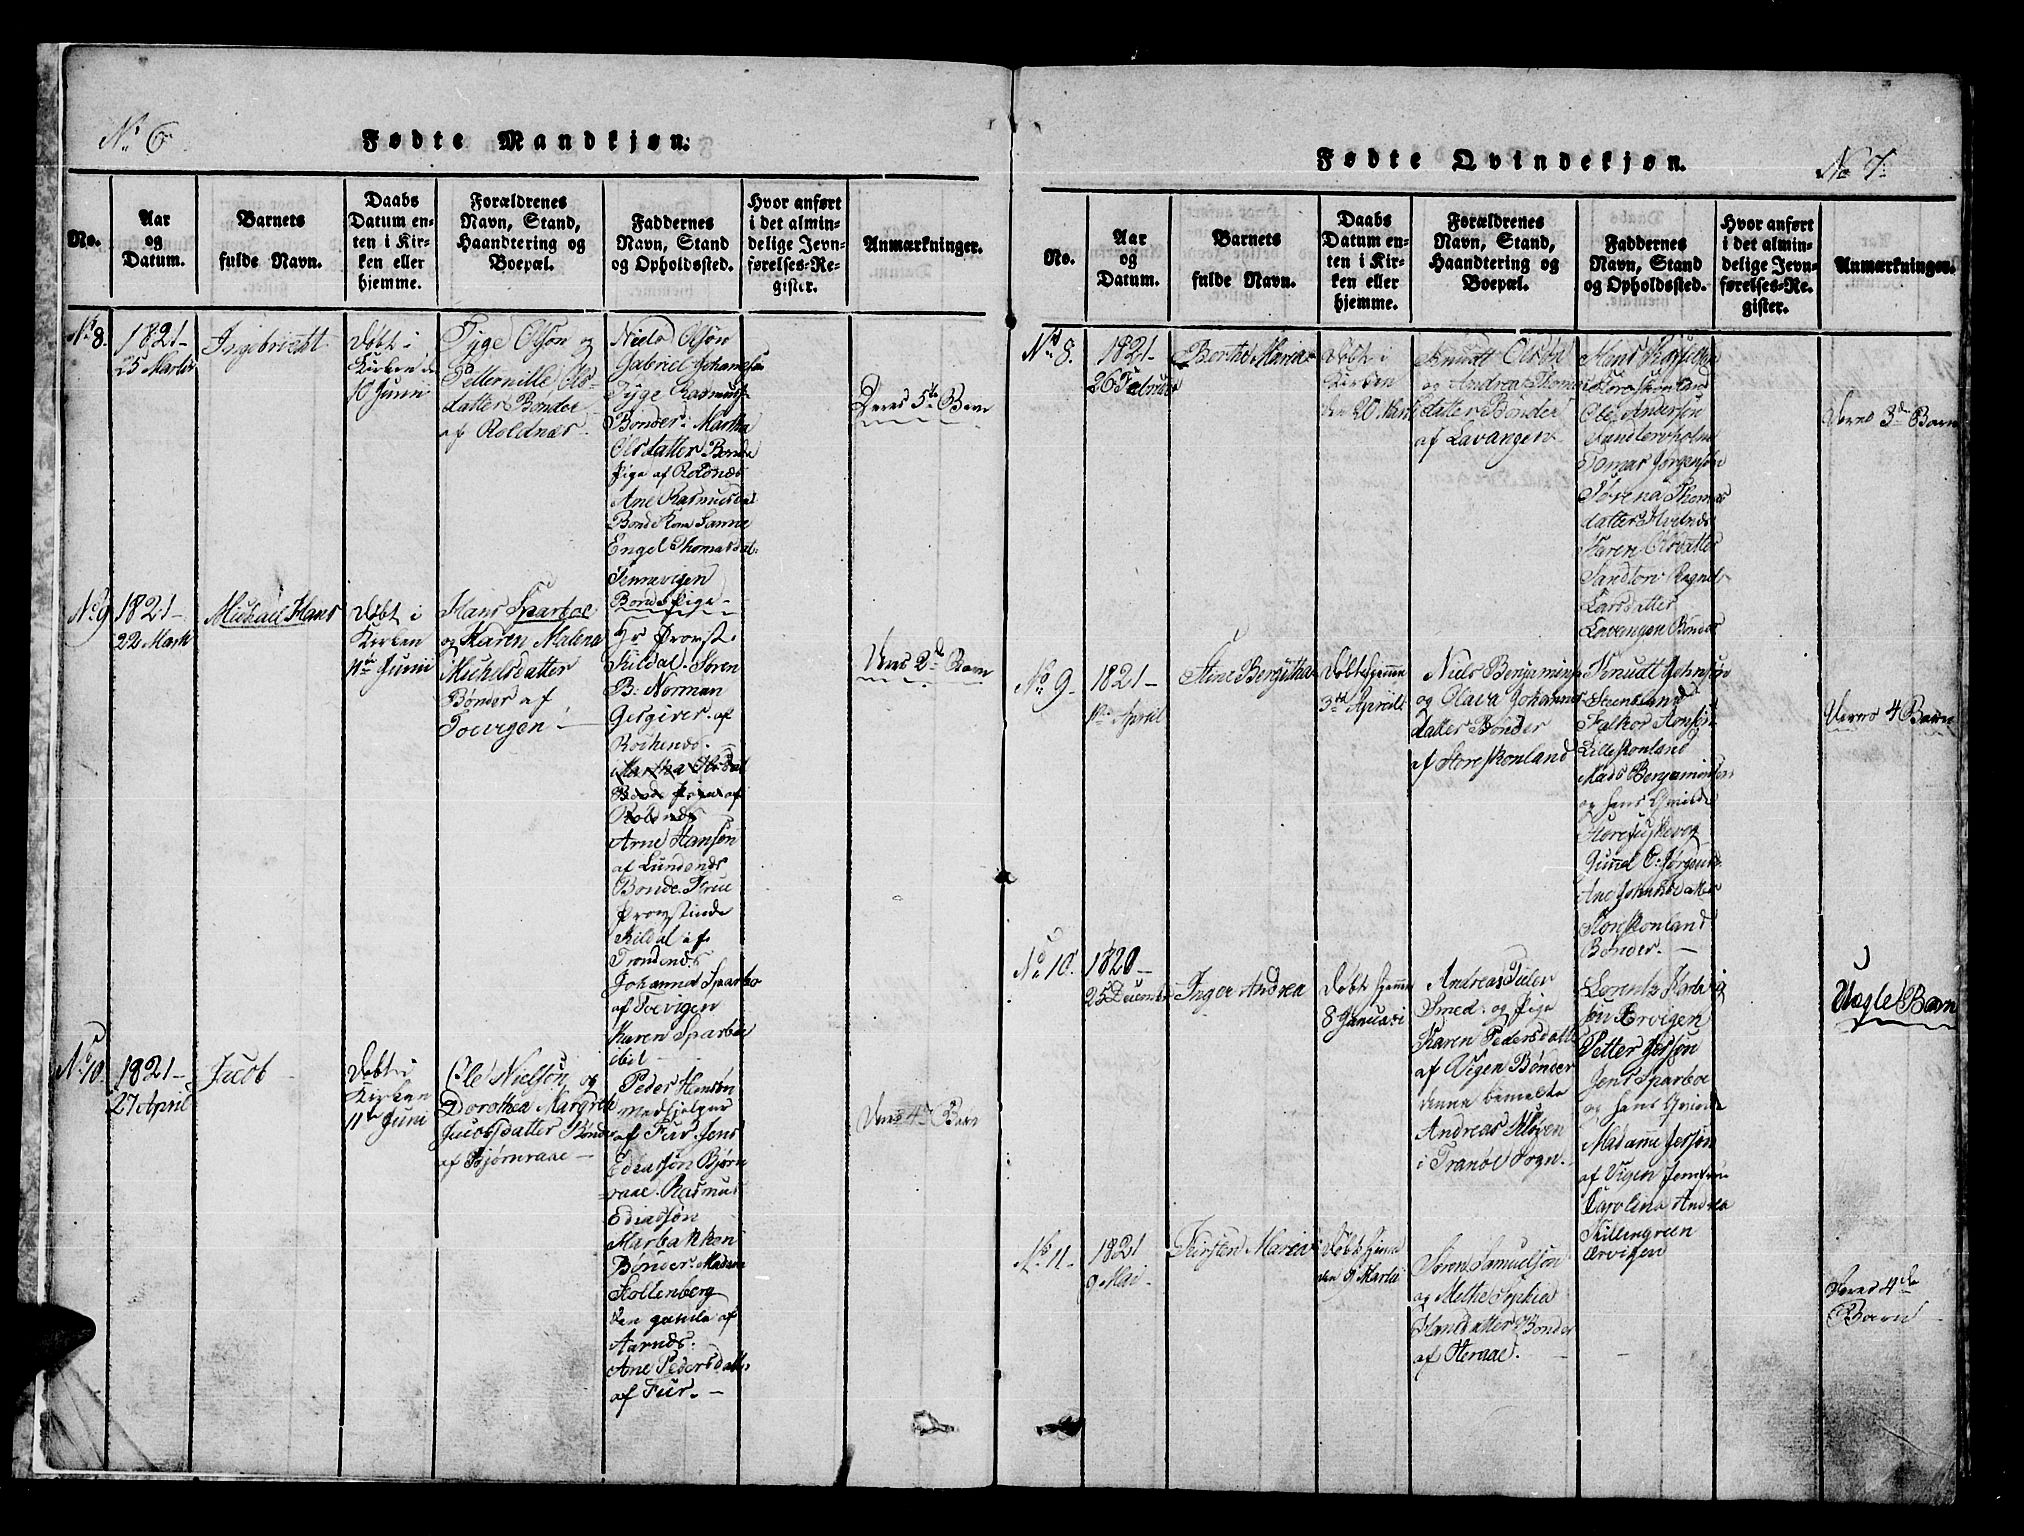 No. 6
Fødte Mandkjøn.
No.
Aar
og
Datum.
Barnets
fulde Navn.
Daabs
Datum en-
ten i Kir-
ken eller
hjemme.
Forældrenes
Navn, Stand,
Haandtering og
Boepæl.
Faddernes
Navn, Stand
og Opholdssted.
Hvor anført
i det almin-
delige Jevn-
førelses-Re-
gister.
Anmærkninger.
No 8.
1821-
25 Martii
Ingebricht
Døbt i
Kirken d
10 Junii
Tyge Olsøn og
Petternille Ols-
datter Bønder
af Roldnæs-
Niels Olsøn
Gabriel Johannesøn
Tyge Rasmus-
Bønder: Martha
Olsdatter Bonde
Pige af Roldnæs
Ane Rasmusdat
Bonde Kone
Engel Thomasdat-
Bonde Pige-
Deres 5te Barn
No 9
1821-
22 Marti
Michael Hans
Døbt i
Kirken
11te Junii
Hans Sparboe
og Karen Malena
Michelsdatter
Bønder af
Toevigen-
Hr Provst
Kildal. Søren
B: Norman
Gesgiver af
Rochenæs.
Martha Olsdat
Bonde Pige af
Roldnæs
Arne Hansøn
af Lundenæs
Bonde. Frue
Provstinde
Kildal af
Trondenæs
Johanna Sparbo
af Toevigen
Karen Sparboe
ibid
Deres 2d Barn
No. 10.
1821-
27 April
Jacob
Døbt i
Kirken
11te Juni
Ole Nielsøn og
Dorothea Margreth
Jacobsdatter Bønder
af Bjørnraae-
Peder Hansøn
Medhjelper
af Fur. Jens
Ediassøn Bjørn
raae. Rasmus
Ediassøn
Marbakken
Bønder. Madam
Hollenberg
den gamle af
Aarnæs:
Ane Pedersdatt.
af Fur.-
Deres 4de Barn
Fødte Qvindekjøn.
No 7.
No.
Aar
og
Datum.
Barnets
fulde Navn.
Daabs
Datum en-
ten i Kir-
ken eller
hjemme.
Forældrenes
Navn, Stand,
Haandtering og
Boepæl.
Faddernes
Navn, Stand
og Opholdssted.
Hvor anført
i det almin-
delige Jevn-
førelses-Re-
gister.
Anmærkninger.
No 8.
1821-
26 Februar
Berthe Maria
Døbt i
Kirken
den 20 Marti
Knudt Olsøn
og Andrea Thomas
datter Bønder
af Lavangen-
Ole Andersøn
Tomas Jørgensøn
Sørena Thomas
datter
Karen Olsdatter
Sandtorv Ragnel
Larsdatter
Lavangen Bønder
Deres 3de Barn
No 9.
1821-
1te April
Stine Bergitha
Døbt hjemme
3die Aprili
Niels Benjaminsøn
og Olava Johannes-
datter Bønder
af Storeskonland
Knudt Johnsøn
Steensland
Falkor
Lilleskonland
Mads Benjaminsen
og hans Qvinde
Ane
Storskonland
Bønder.-
Deres 4 Barn
No 10.
1820-
25 December
Inger Andrea
Døbt hjemme
8 Januari
Andreas
Smed: og Pige
Karen Pedersdatter
af Vigen Bønder
denne bemeldte
Andreas Kløven
i Tranøe Sogn.
Lorentz
Ervigen
Petter Jersøn
Jens Sparboe
og hans Qvinde
Madamme Jersøn
af Vigen Jomfrue
Carolina Andrea
Killengreen
Ervigen
Uægte Barn
No 11.
1821
9 Mai-
Kirsten Maria
Døbt hjemme
den 9 Martii
Søren Samuelsøn
og Methe Sophia
Hansdatter Bønder
af Heraae.
Deres 4de
Barn